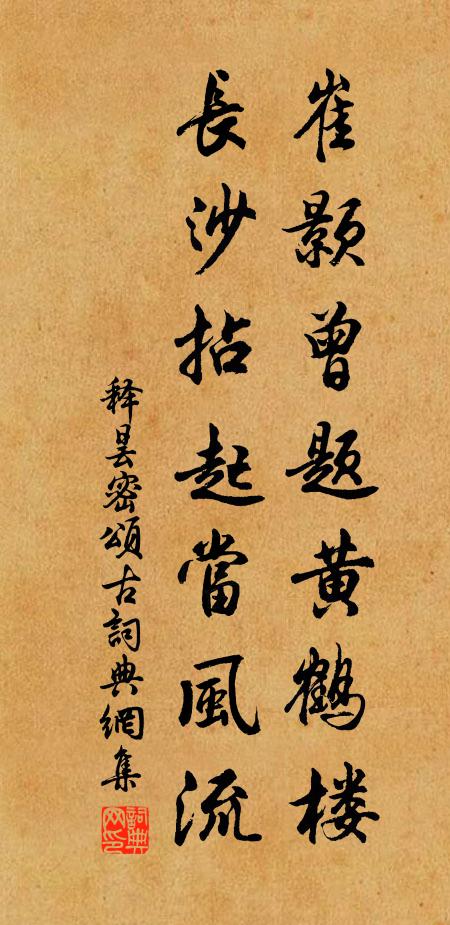 崔颢曾题黄鹤楼
長沙拈起當風流
释昙密頌古詞典網集
詞典网印